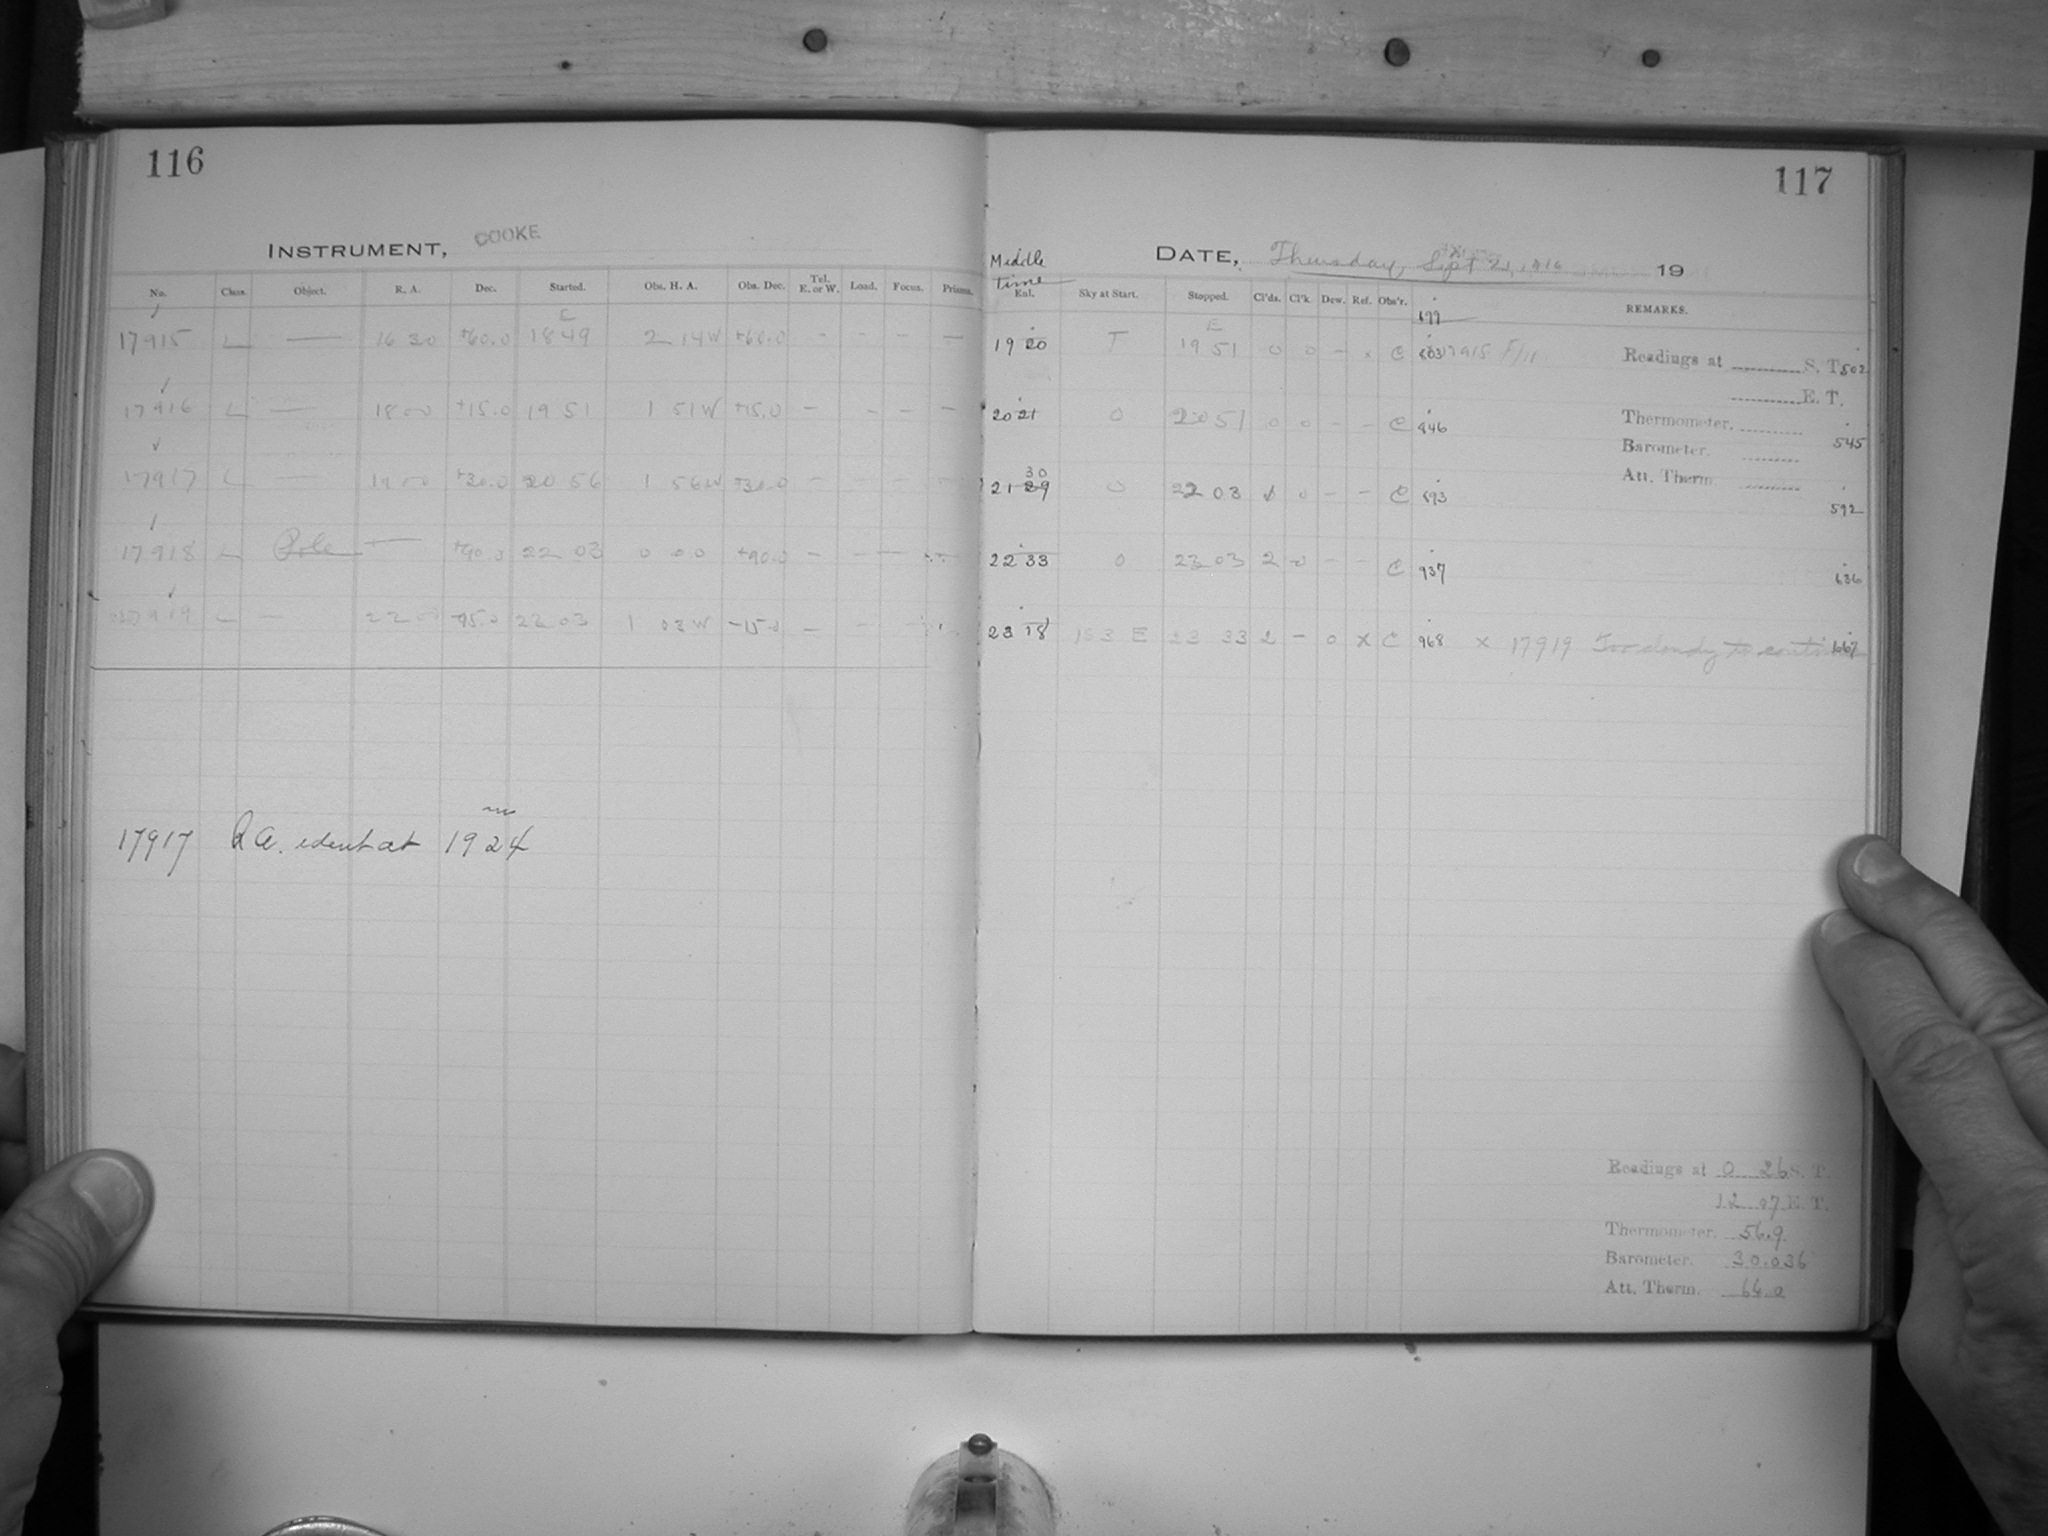 116
INSTRUMENT, COOKE
No. Class. Object. R. A. Dec. Started. Obs. H. A. Obs. Dec. Tel. E. or W. Load. Focus. Prisms.
17915 L — 16 30 +60.0 18 49 2 14W +60.0 - - - - —
17916 L — 18 00 +15.0 19 51 1 51W +15.0 - - - -
17917 L — 19 00 +30.0 20 56 1 56W +30.0 - - - -
17918 L Pole — +90.0 22 03 0 0.0 +90.0 - - -
17919 L — 22 00 -15.0 23 03 1 03W -15.0 - - -
17917 R.A. ident at 19 24
117
DATE, Thursday, Sept 21, 1916 19
Middle time
Enl. Sky at Start. Stopped. Cl'ds. Cl'k. Dew. Ref. Obs'r. REMARKS.
699
E
19 20 T 19 51 0 0 - x C 803 17915 F/11
Readings at S. T. 502
E. T.
20 21 0 20 51 0 0 - - C 846
Thermometer. 545
Barometer.
30
21 29 0 22 03 0 - - C 893
Att. Therm. 592
22 33 0 23 03 2 0 - - C 937 636
23 18 153 E 23 33 2 - 0 X C 968 x 17919 Too cloudy to continue 667
Readings at 0 26 S. T.
12 07 E. T.
Thermometer. 56.9
Barometer. 30.036
Att. Therm. 64.0